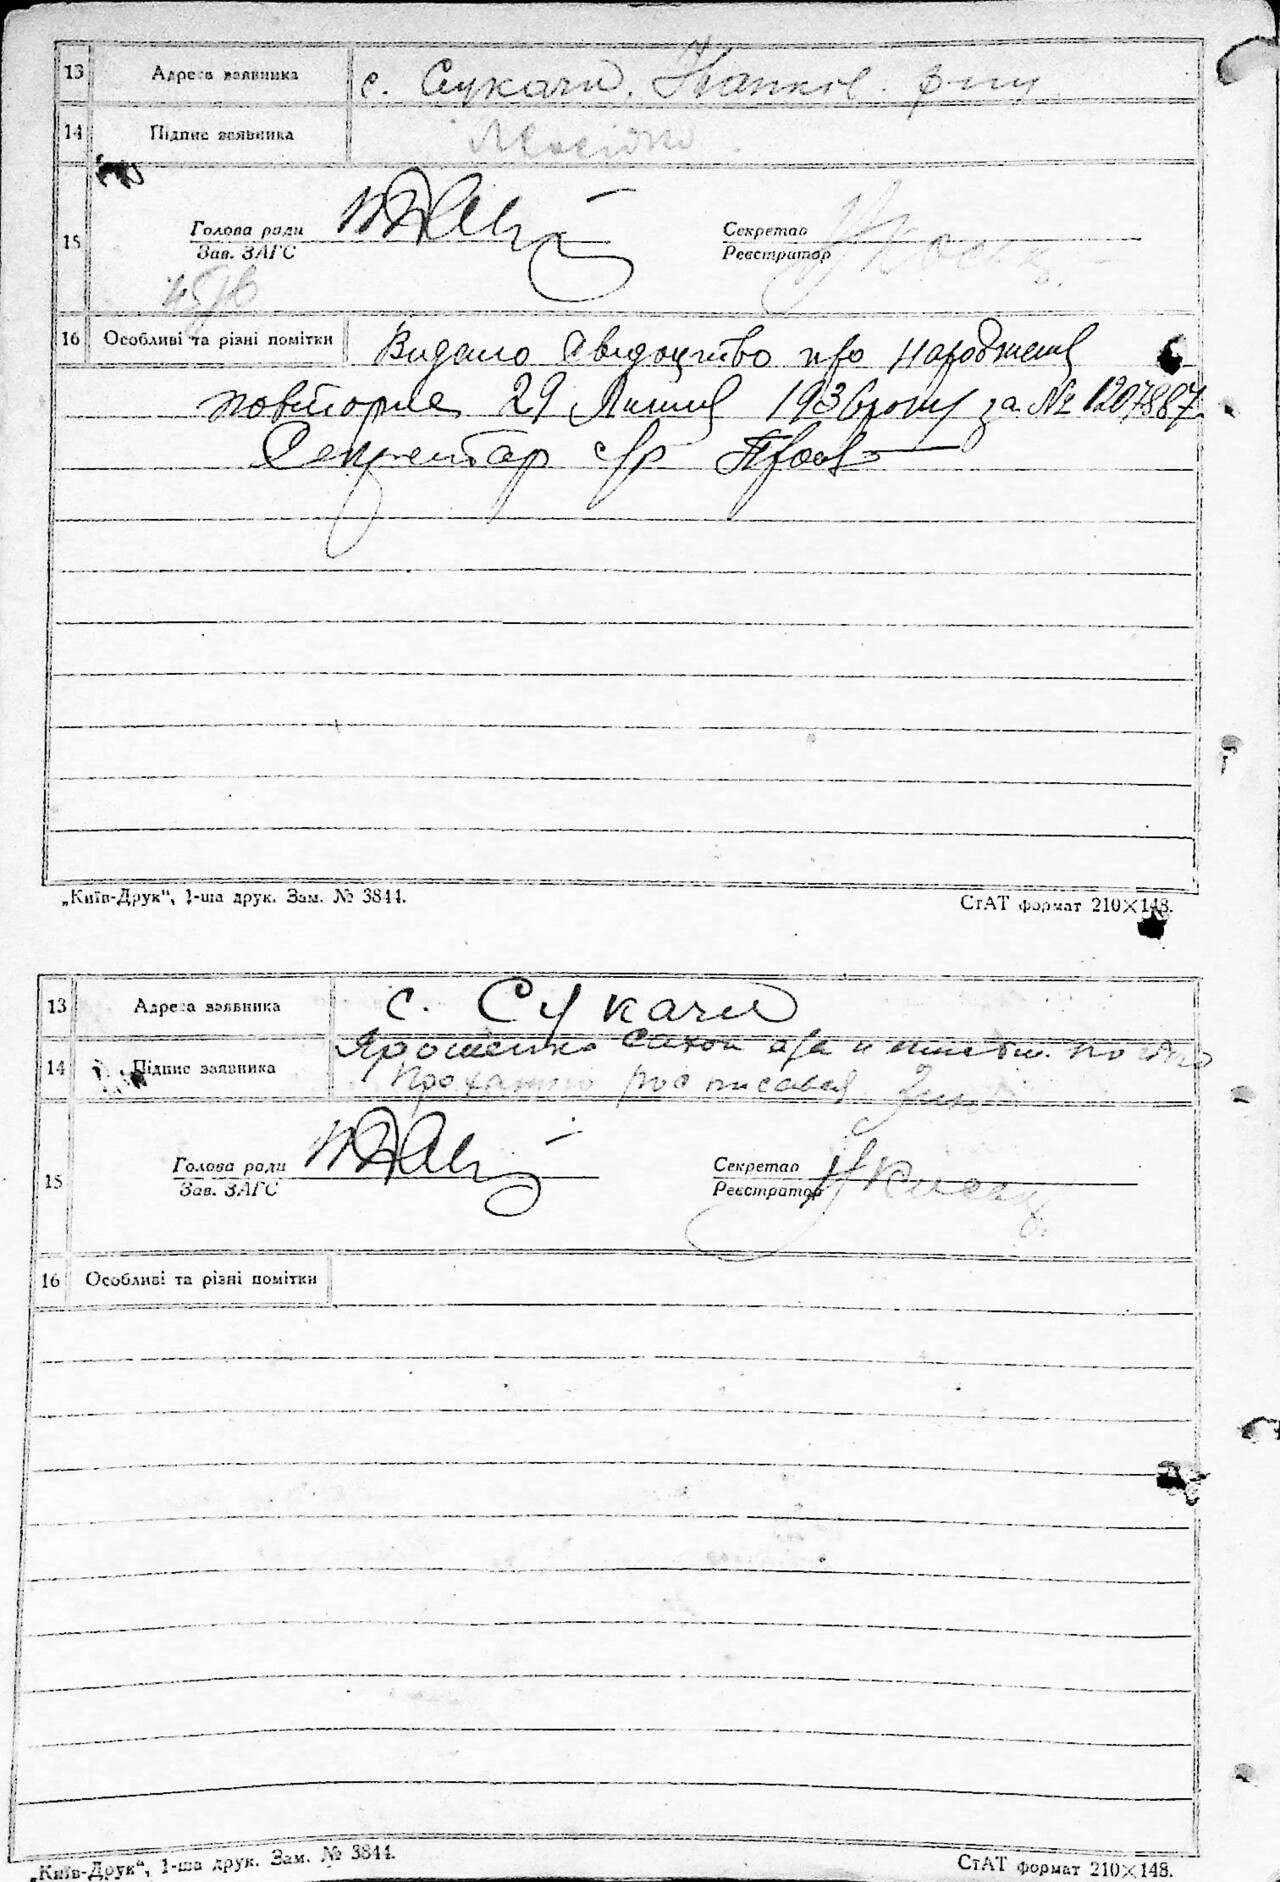 13 Адреса заявника с. Сукачи. Іванків. р-ну
14 Підпис заявника
15 Голова ради Секретар
Зав. ЗАГС Реєстратор
16 Особливі та різні помітки Видано свидоцтво про народження
повторне 29 Липня 1936 року за № 1207887
Секретар с/р
„Київ-Друк“, 1-ша друк. Зам. № 3844. СтАТ формат 210×148.
13 Адреса заявника с. Сукачи
Ярошенко
14 Підпис заявника росписався
15 Голова ради Секретар
Зав. ЗАГС Реєстратор
16 Особливі та різні помітки
„Київ-Друк“, 1-ша друк. Зам. № 3844. СтАТ формат 210×148.